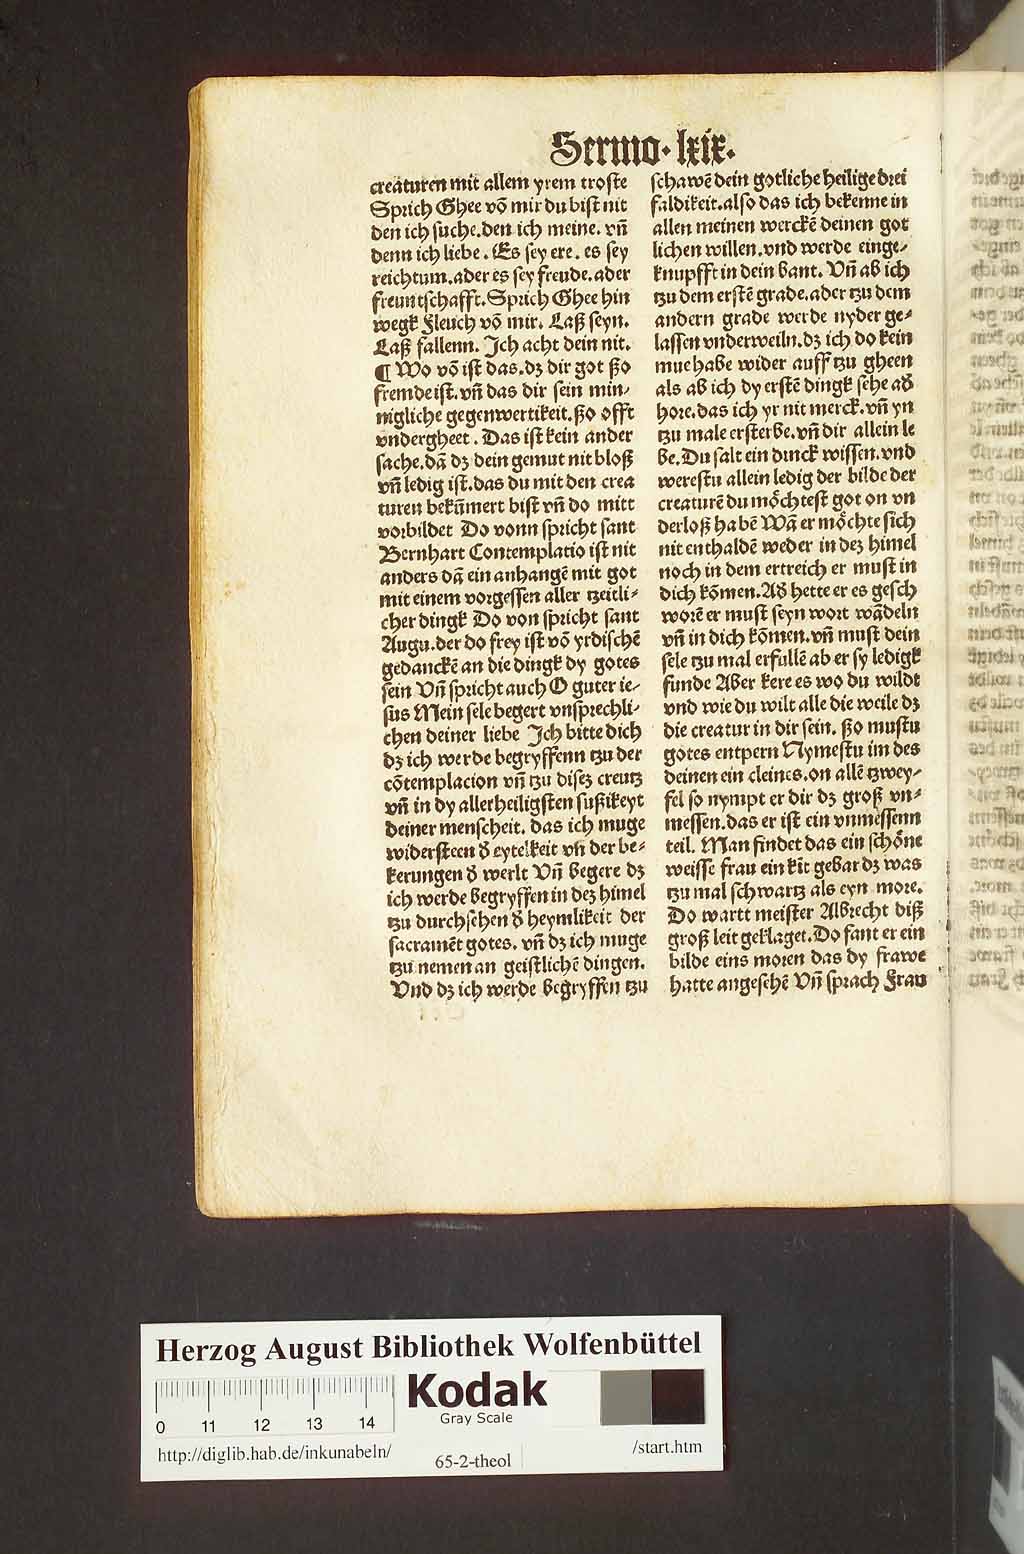 Sermo· lxix.
creaturen mit allem yrem troste
Sprich Ghee võ mir du bist nit
den ich suche.den ich meine. vñ
denn ich liebe. Es sey ere. es sey
reichtum.ader es sey freude.ader
freuntschafft.Sprich Ghee hin
wegk Fleuch võ mir. Laß seyn.
Laß fallenn. Ich acht dein nit.
¶ Wo võ ist das.dʒ dir got ßo
fremde ist.vñ das dir sein min⸗
nigliche gegenwertikeit.ßo offt
vndergheet. Das ist kein ander
sache.dã dʒ dein gemut nit bloß
vñ ledig ist.das du mit den crea
turen bekũmert bist vñ do mitt
vorbildet Do vonn spricht sant
Bernhart Contemplatio ist nit
anders dã ein anhangẽ mit got
mit einem vorgessen aller tzeitli⸗
cher dingk Do von spricht sant
Augu.der do frey ist võ yrdischẽ
gedanckẽ an die dingk dy gotes
sein Vñ spricht auch O guter ie⸗
sus Mein sele begert vnsprechli⸗
chen deiner liebe Ich bitte dich
dʒ ich werde begryffenn tzu der
cõtemplacion vñ tzu disez creutz
vñ in dy allerheiligsten sußikeyt
deiner menscheit. das ich muge
widersteen ð eytelkeit vñ der be⸗
kerungen ð werlt Vñ begere dʒ
ich werde begryffen in dez himel
tzu durchsehen ð heymlikeit der
sacramẽt gotes. vñ dʒ ich muge
tzu nemen an geistlichẽ dingen.
Vnd dʒ ich werde begryffen tzu
schawẽ dein gotliche heilige drei
faldikeit.also das ich bekenne in
allen meinen werckẽ deinen got
lichen willen.vnd werde einge⸗
knupfft in dein bant. Vñ ab ich
tzu dem erstẽ grade.ader tzu dem
andern grade werde nyder ge⸗
lassen vnderweiln.dʒ ich do kein
mue habe wider auff tzu gheen
als ab ich dy erstẽ dingk sehe að
hore.das ich yr nit merck.vñ yn
tzu male ersterbe.vñ dir allein le
be.Du salt ein dinck wissen.vnd
werestu allein ledig der bilde der
creaturẽ du möchtest got on vn
derloß habẽ Wã er möchte sich
nit enthaldẽ weder in dez himel
noch in dem ertreich er must in
dich kõmen.Að hette er es gesch
worẽ er must seyn wort wãdeln
vñ in dich kõmen.vñ must dein
sele tzu mal erfullẽ ab er sy ledigk
funde Aber kere es wo du wildt
vnd wie du wilt alle die weile dʒ
die creatur in dir sein. ßo mustu
gotes entpern Nymestu im des
deinen ein cleines.on allẽ tzwey⸗
fel so nympt er dir dʒ groß vn⸗
messen.das er ist ein vnmessenn
teil. Man findet das ein schöne
weisse frau ein kĩt gebar dʒ was
tzu mal schwartz als eyn more.
Do wartt meister Albrecht diß
groß leit geklaget.Do fant er ein
bilde eins moren das dy frawe
hatte angesehẽ Vñ sprach Frau
Herzog August Bibliothek Wolfenbüttel
Kodak
Gray Scale
0 11 12 13 14
http://diglib.hab.de/inkunabeln/
65-2-theol
/start.htm